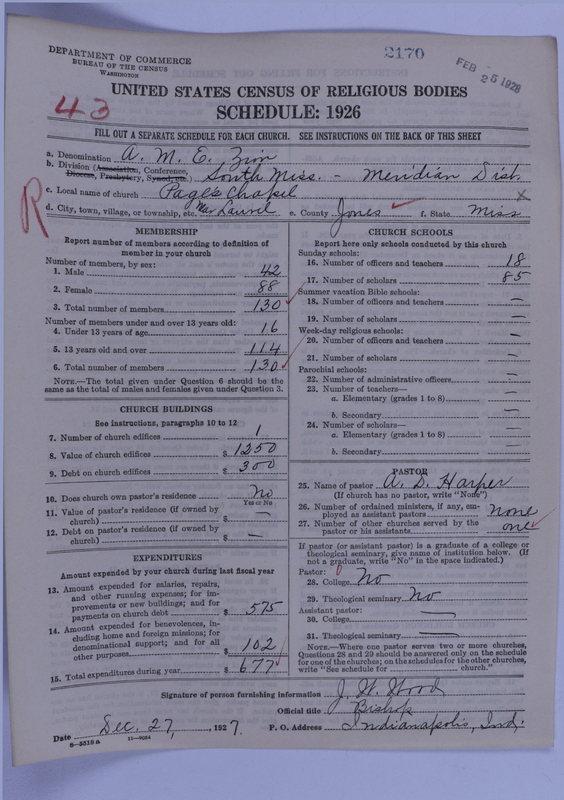 DEPARTMENT OF COMMERCE
BUREAU OF THE CENSUS
WASHINGTON
2170
FEB 25 1928
43
UNITED STATES CENSUS OF RELIGIOUS BODIES
SCHEDULE: 1926
FILL OUT A SEPARATE SCHEDULE FOR EACH CHURCH. SEE INSTRUCTIONS ON THE BACK OF THIS SHEET
a. Denomination A. M. E. Zion
b. Division (Association, Conference, Diocese, Presbytery, Synod, etc.) South Miss. - Meridian Dist.
c. Local name of church Pages Chapel
d. City, town, village, or township, etc. Near Laurel e. County Jones f. State Miss
R
MEMBERSHIP
Report number of members according to definition of
member in your church
Number of members, by sex:
1. Male 42
2. Female 88
3. Total number of members 130
Number of members under and over 13 years old:
4. Under 13 years of age 16
5. 13 years old and over 114
6. Total number of members 130
NOTE.—The total given under Question 6 should be
same as the total of males and females given under Question 3.
CHURCH BUILDINGS
See instructions, paragraphs 10 to 12
7. Number of church edifices 1
8. Value of church edifices $ 1250
9. Debt on church edifices $ 300
10. Does church own pastor's residence No
Yes or No
11. Value of pastor's residence (if owned by
church) $ —
12. Debt on pastor's residence (if owned by
church) $ —
EXPENDITURES
Amount expended by your church during last fiscal year
13. Amount expended for salaries, repairs,
and other running expenses; for im-
provements or new buildings; and for
payments on church debt $ 575
14. Amount expended for benevolences, in-
cluding home and foreign missions; for
denominational support; and for all
other purposes $ 102
15. Total expenditures during year $ 677
CHURCH SCHOOLS
Report here only schools conducted by this church
Sunday schools:
16. Number of officers and teachers 18
17. Number of scholars 85
Summer vacation Bible schools:
18. Number of officers and teachers —
19. Number of scholars —
Week-day religious schools:
20. Number of officers and teachers —
21. Number of scholars —
Parochial schools:
22. Number of administrative officers —
23. Number of teachers—
a. Elementary (grades 1 to 8) —
b. Secondary —
24. Number of scholars—
a. Elementary (grades 1 to 8) —
b. Secondary —
PASTOR
25. Name of pastor A. D. Harper
(If church has no pastor, write "None")
26. Number of ordained ministers, if any, em-
ployed as assistant pastors none
27. Number of other churches served by the
pastor or his assistants one
If pastor (or assistant pastor) is a graduate of a college or
theological seminary, give name of institution below. (If
not a graduate, write "No" in the space indicated.)
Pastor:
28. College No
29. Theological seminary No
Assistant pastor:
30. College —
31. Theological seminary —
NOTE.—Where one pastor serves two or more churches,
Questions 28 and 29 should be answered only on the schedule
for one of the churches; on the schedules for the other churches,
write "See schedule for church."
Signature of person furnishing information J. W. Wood
Official title Bishop
Date Dec. 27, 1927. P. O. Address Indianapolis, Ind.
8-5518a 11-9084